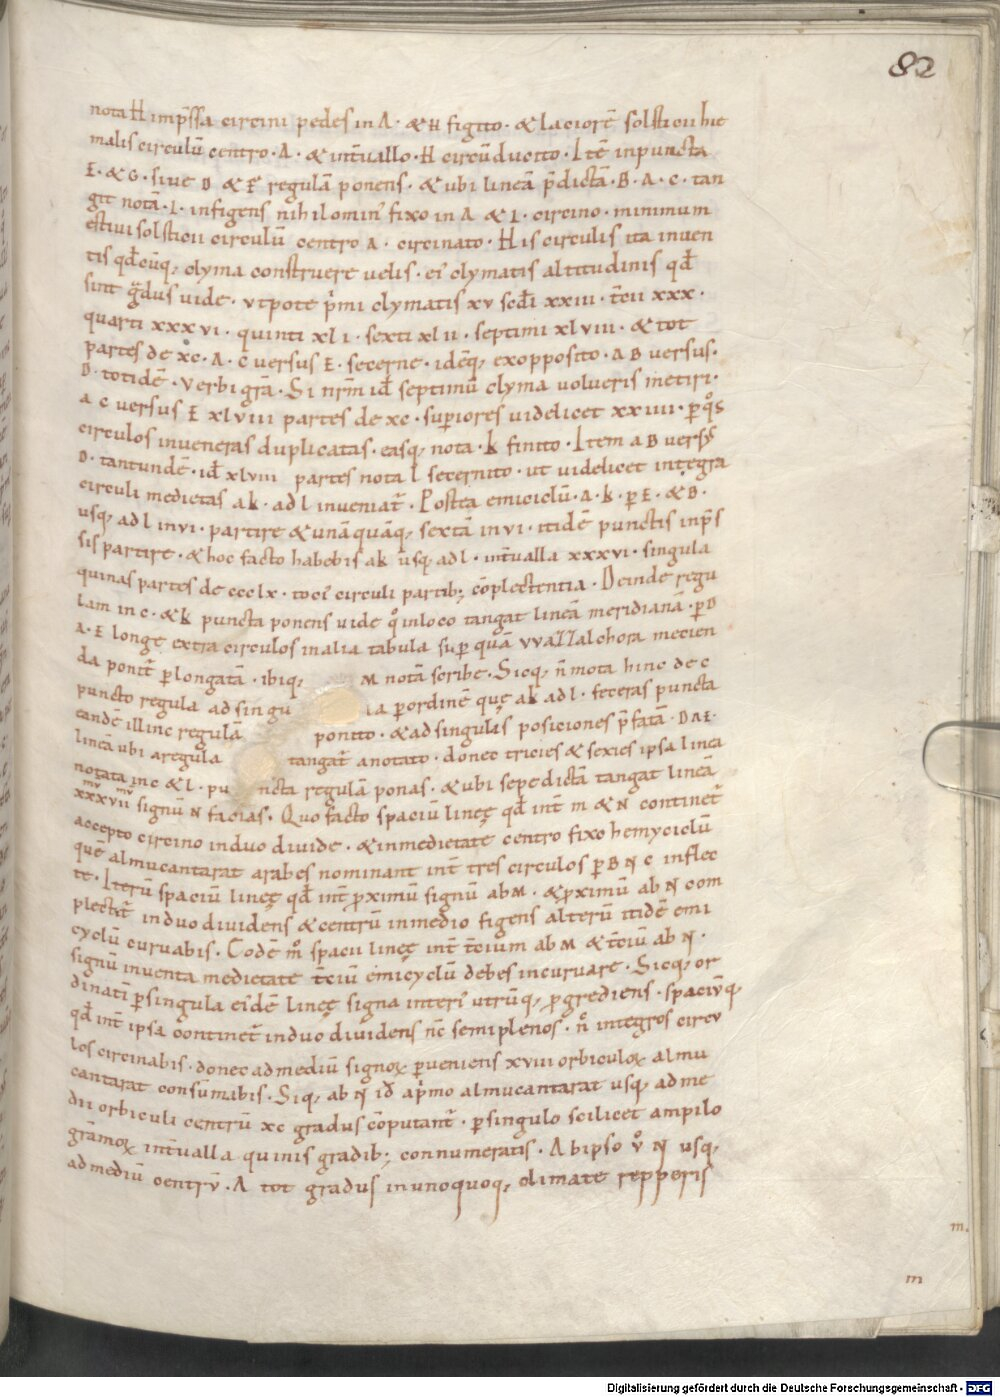 82
nota H imp̄ssa circini pedes in A · & H figito · & laciorē solsticii hie
malis circulū centro · A · & int̄uallo · H circūducito · Itē in puncta
E · & G · siue D & E regulā ponens · & ubi lineā p̄dictā · B · A · C · tan
git notā · I · infigens nihilomin' fixo in A & I · circino · minimum
estiui solsticii circulū centro A · circinato · His circulis ita inuen
tis qd̄cūq; clyma construere uelis · ei' clymatis altitudinis qd̄
sint g̃dus uide · utpote p'mi clymatis xv scd̄i xxiii · t̄cii xxx ·
quarti xxxvi · quinti xli · sexti xlii · septimi xlviii · & tot
partes de xc · A · C versus E · secerne · idēq; ex opposito · A B versus ·
D · totidē · Verbi grā · Si nr̄m id̄ septimū clyma volueris metiri ·
a C versus E xlviii partes de xc · supiores uidelicet xxiiii · p q°s
circulos inueneras duplicatas · easq; nota · K finito · Item a B vers'
D · tantundē · id̄ xlviii partes nota l secernito · ut uidelicet integra
circuli medietas a k · ad l inueniat̄ · Postea emiciclū · A · K · p E · & B ·
usq; ad l in vi · partire & unāquāq; sextā in vi · itidē punctis inp̄s
sis partire · & hoc facto habebis a k usq; ad l · int̄ualla xxxvi · singula
quinas partes de ccclx · toci' circuli partib; cōplectentia · Deinde regu
lam in c · & k puncta ponens uide q° in loco tangat lineā meridianā · p D
A · E longe extra circulos in alia tabula sup quā vvazzalchora mecien
da ponit̄ plongatā · ibiq; M notā scribe · Sicq; n̄ mota hinc de c
puncto regula ad singu la p ordinē quę a k ad l · feceras puncta
eandē illinc regulā ponito · & ad singulis posiciones p̄fatā · D A E ·
lineā ubi a regula tangat̄ anotato · donec tricies & sexies ipsa linea
notata in c & l · pu ncta regulā ponas · & ubi sepe dictā tangat lineā
xxxvii signū N facias · Quo facto spaciū lineę qd̄ int̄ m & N continet̄
accepto circino in duo diuide · & in medietate centro fixo hemyciclū
quē almucantarat arabes nominant int̄ tres circulos p B N C inflec
te · Iterū spaciū lineę qd̄ int̄ pximū signū ab M · & pximū ab N com
plectit̄ in duo diuidens & centrū in medio figens alterū itidē emi
cyclū curuabis · Eodē m° spacii lineę int̄ t̄cium ab M & t̄ciū ab N ·
signū inuenta medietate t̄ciū emicyclū debes incuruare · Sicq; or
dinati' p singula ei'dē lineę signa interi' utrūq; pgrediens · spaciūq;
qd̄ int̄ ipsa continet̄ in duo diuidens nc̄ semiplenos · n° integros circu
los circinabis · donec ad mediū signoꝝ pueniens xviii orbiculoꝝ almu
cantarat consūmabis · Siq; ab N id̄ a p'mo almucantarat usq; ad me
dii orbiculi centrū xc gradus cōputant̄ · p singulo scilicet ampilo
grāmoꝝ int̄ualla quinis gradib; connumeratis · Ab ipso v° N usq;
ad mediū centrū · A tot gradus in unoquoq; climate repperis
m.
m
Digitalisierung gefördert durch die Deutsche Forschungsgemeinschaft - DFG